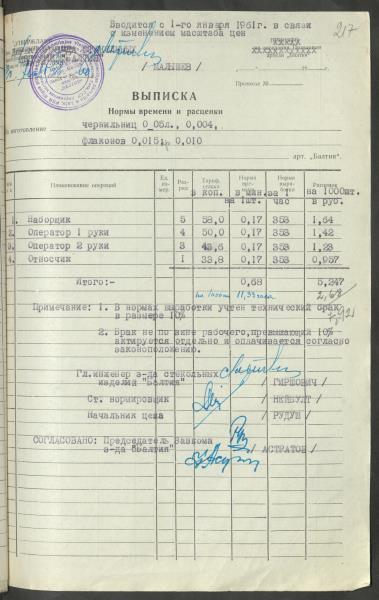 Вводится с 1-го января 1961г. в связи
с изменением масштаба цен
217
/ МАЛЫШЕВ /
Протокол №
ВЫПИСКА
Нормы времени и расценки
на изготовление чернильниц 0,05л., 0,004,
флаконов 0,015; 0,010
арт. „Балтик“.
Наименование операций
Ед. измер.
Разряд
Тариф. ставка в коп.
Норма времени в мин. за 1 на 1шт.
Норма выработки час
Расценка на 1000шт. в руб.
1. Наборщик 5 58,0 0,17 353 1,64
2. Оператор 1 руки 4 50,0 0,17 353 1,42
3 Оператор 2 руки 3 43,6 0,17 353 1,23
4. Относчик 1 33,8 0,17 353 0,957
Итого:- 0,68 5,247
2,68
7,921
Примечание: 1. В нормах выработки учтен технический брак
в размере 10%
2. Брак не по вине рабочего, превышающий 10% -
актируется отдельно и оплачивается согласно
законоположению.
Гл.инженер з-да стекольных
изделий "Балтия" / ГИРШОВИЧ /
Ст. нормировщик / НЕЙБУЛТ /
Начальник цеха / РУДУШ /
СОГЛАСОВАНО: Председатель Завкома
з-да "Балтия" / АСТРАТОВ /